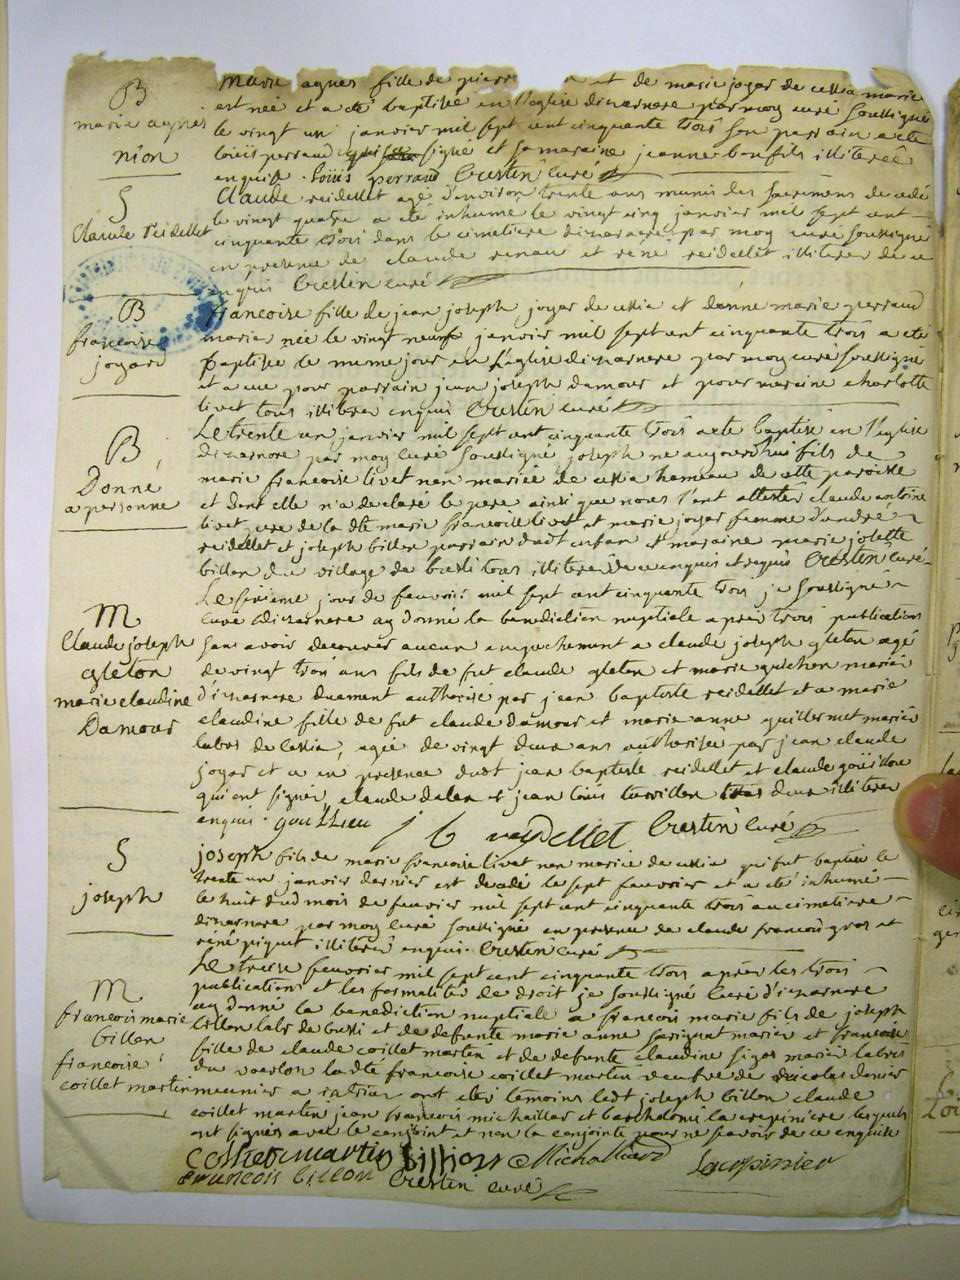 B
marie agnes
nion
marie agnes fille de pierre et de marie jogar de cessia marie
est née et a été baptisée en l'eglise dizarnore par moy curé soussigné
le vingt un janvier mil sept cent cinquante trois son parrain a été
louis perraud qui signé et sa maraine jeanne bonfils illiterée
enquise . Loüis perraud Crestin curé
S
Claude reidellet
Claude reidellet agé d'environ trente ans munis des sacremens decedé
le vingt quatre a été inhumé le vingt cinq janvier mil sept cent
cinquante trois dans le cimetiere dizarnore par moy curé soussigné
en presence de claude renau et rené reidellet illiterés de ce
enquis Crestin curé
B
francoise
jogard
francoise fille de jean joseph jogar de cessia et donne marie perraud
mariés née le vingt neuf janvier mil sept cent cinquante trois a été
baptisée le meme jour en l'eglise dizarnore par moy curé soussigné
et a eue pour parrain jean joseph damour et pour maraine charlotte
livet tous illiterés enquis Crestin curé
B
Donné
a personne
Le trente un janvier mil sept cent cinquante trois a été baptisé en l'eglise
dizarnore par moy curé soussigné joseph né aujourd'hui fils de
marie francoise livet non mariée de cessia hameau de cette paroisse
et dont elle n'a declaré le pere ainsi que nous l'ont attesté claude antoine
livet pere de la dte marie francoise livet et marie jogar femme d'andré
reidellet et joseph billon parrain dudt enfan et maraine marie josette
billon du village de bussi tous illiterés de ce enquis et requis Crestin curé
M
Claude joseph
gleton
marie claudine
Damour
Le sixieme jour de fevrier mil sept cent cinquante trois je soussigné
curé dizarnore ay donné la benediction nuptiale apres trois publications
sans avoir decouvert aucun empechement a claude joseph gleton agé
de vingt trois ans fils de fut claude gleton et marie guichon mariés
d'izarnore duement authorisé par jean baptiste reidellet et a marie
claudine fille de fut claude damour et marie anne guillermet mariés
labrs de Cessia, agée de vingt deux ans authorisée par jean claude
jogar et ce en presence dudt jean baptiste reidellet et claude goüillou
qui ont signés, claude dalen et jean loüis tervillon deux illiterés
enquis . goullieu j b reydellet Crestin curé
S
joseph
joseph fils de marie francoise livet non mariée de cessia qui fut baptisé le
trente un janvier dernier est decedé le sept fevrier et a été inhumé
le huit dud mois de fevrier mil sept cent cinquante trois au cimetiere
dizarnore par moy curé soussigné en presence de claude francois gros et
réné piquet illiterés enquis . Crestin curé
M
francois marie
billon
francoise
coillet martin
Le treise fevrier mil sept cent cinquante trois apres les trois
publications et les formalités de droit je soussigné curé d'izarnore
ay donné la benediction nuptiale a francois marie fils de joseph
billon labr de bussi et de defunte marie anne savignet mariés et francoise
fille de claude coillet martin et de defunte claudine sigos mariés labrs
du voerlon ladte francoise coillet martin veufve de nicolas denier
meunier a intriat ont étés temoins ledt joseph billon claude
coillet martin jean francois michaillar et bartholomé la crepiniere lesquels
ont signés avec le conjoint et non la conjointe pour ne scavoir de ce enquise
Collietmartin billion Michalliard Lacrpinier
francois billon Crestin curé